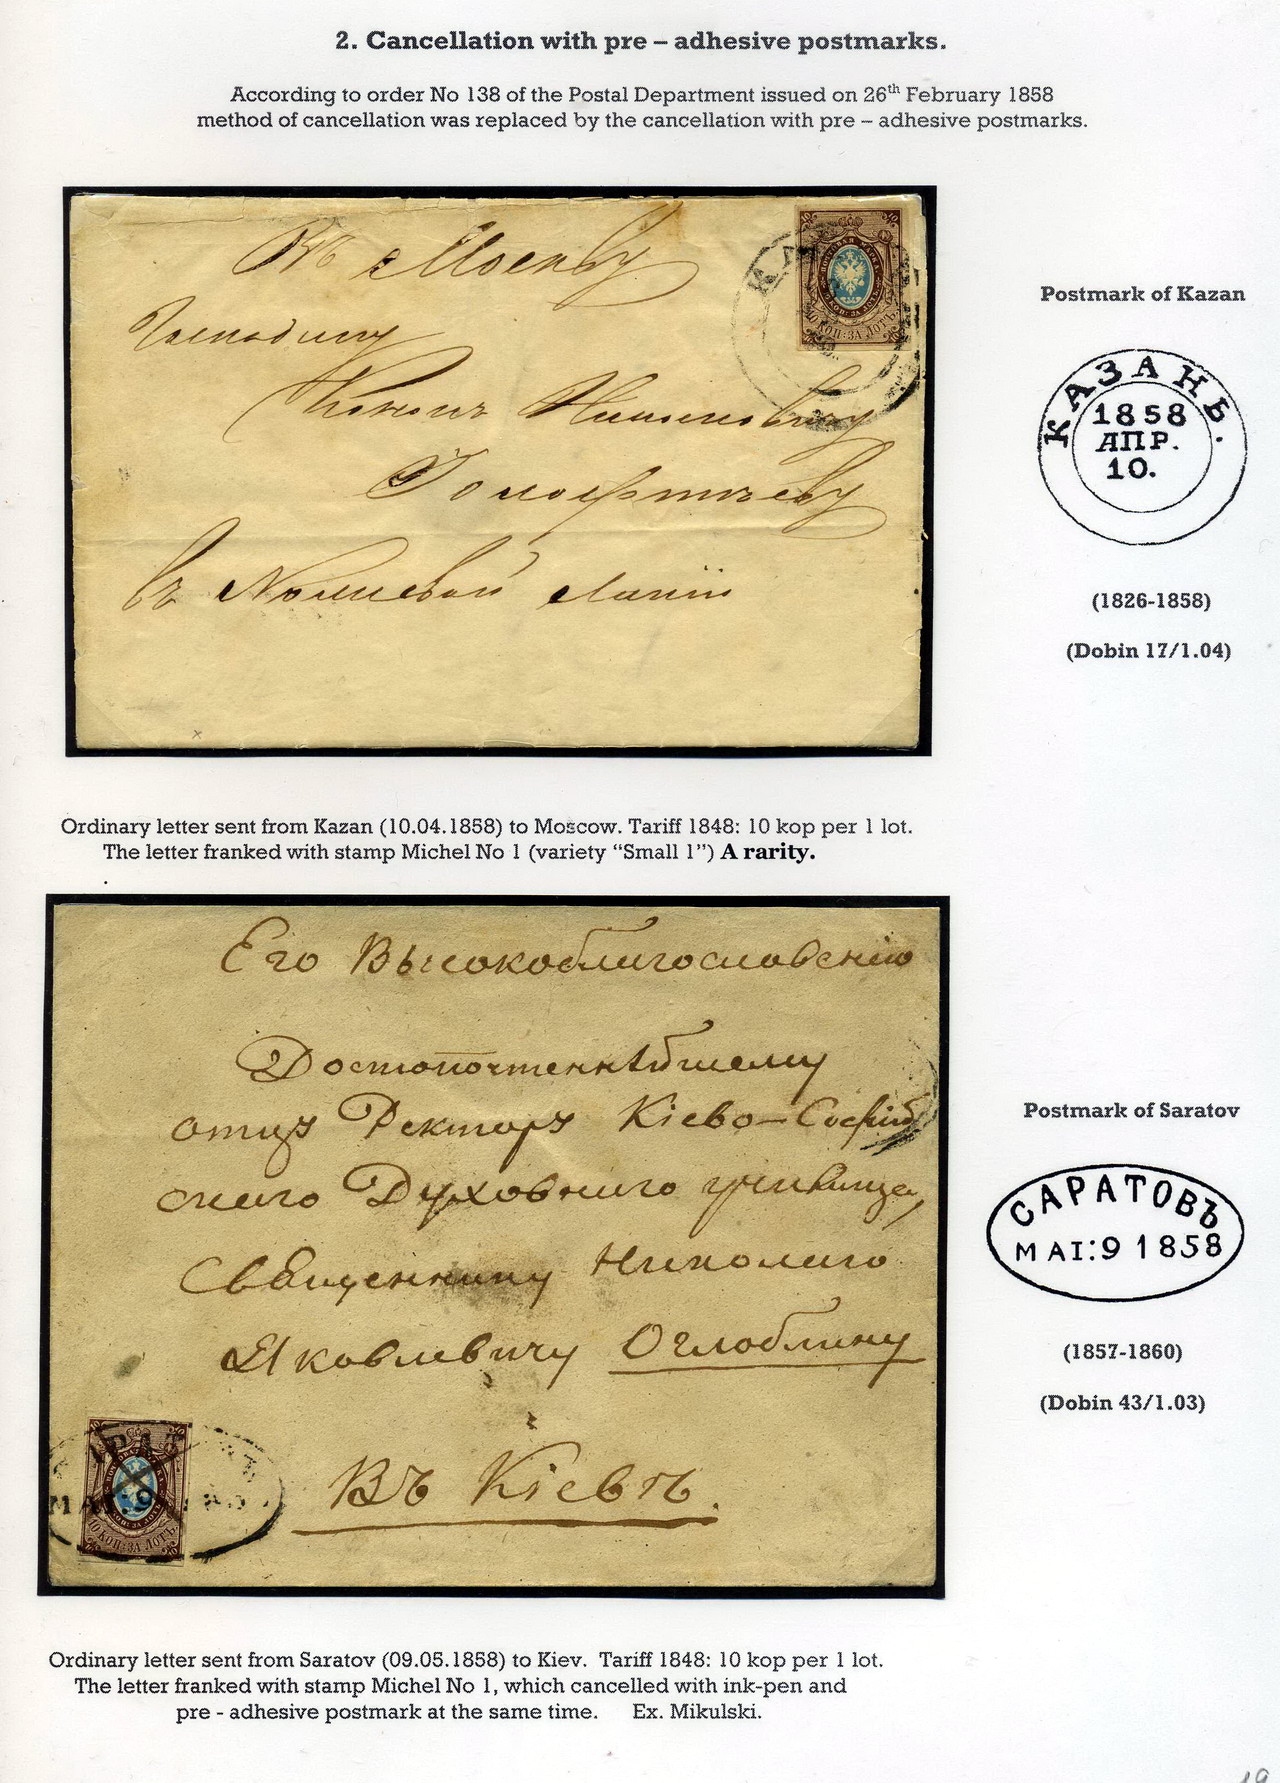 2. Cancellation with pre – adhesive postmarks.
According to order No 138 of the Postal Department issued on 26th February 1858
method of cancellation was replaced by the cancellation with pre – adhesive postmarks.
Въ Москву
10 КОП: ЗА ЛОТЪ.
Господину
въ
Postmark of Kazan
КАЗАНЬ.
1858
АПР.
10.
(1826-1858)
(Dobin 17/1.04)
Ordinary letter sent from Kazan (10.04.1858) to Moscow. Tariff 1848: 10 kop per 1 lot.
The letter franked with stamp Michel No 1 (variety “Small 1”) A rarity.
Его Высокоблагословению
Достопочтеннѣйшему
отцу Ректору Кіево-Софій
скаго Духовнаго училища,
Священнику Николаю
Яковлевичу Оглоблину
Въ Кіевъ.
МАІ:9
10 КОП: ЗА ЛОТЪ.
Postmark of Saratov
САРАТОВЪ
МАІ:9 1858
(1857-1860)
(Dobin 43/1.03)
Ordinary letter sent from Saratov (09.05.1858) to Kiev. Tariff 1848: 10 kop per 1 lot.
The letter franked with stamp Michel No 1, which cancelled with ink-pen and
pre - adhesive postmark at the same time. Ex. Mikulski.